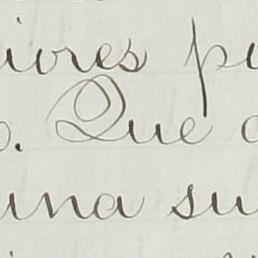 iores p
o. Que
una su